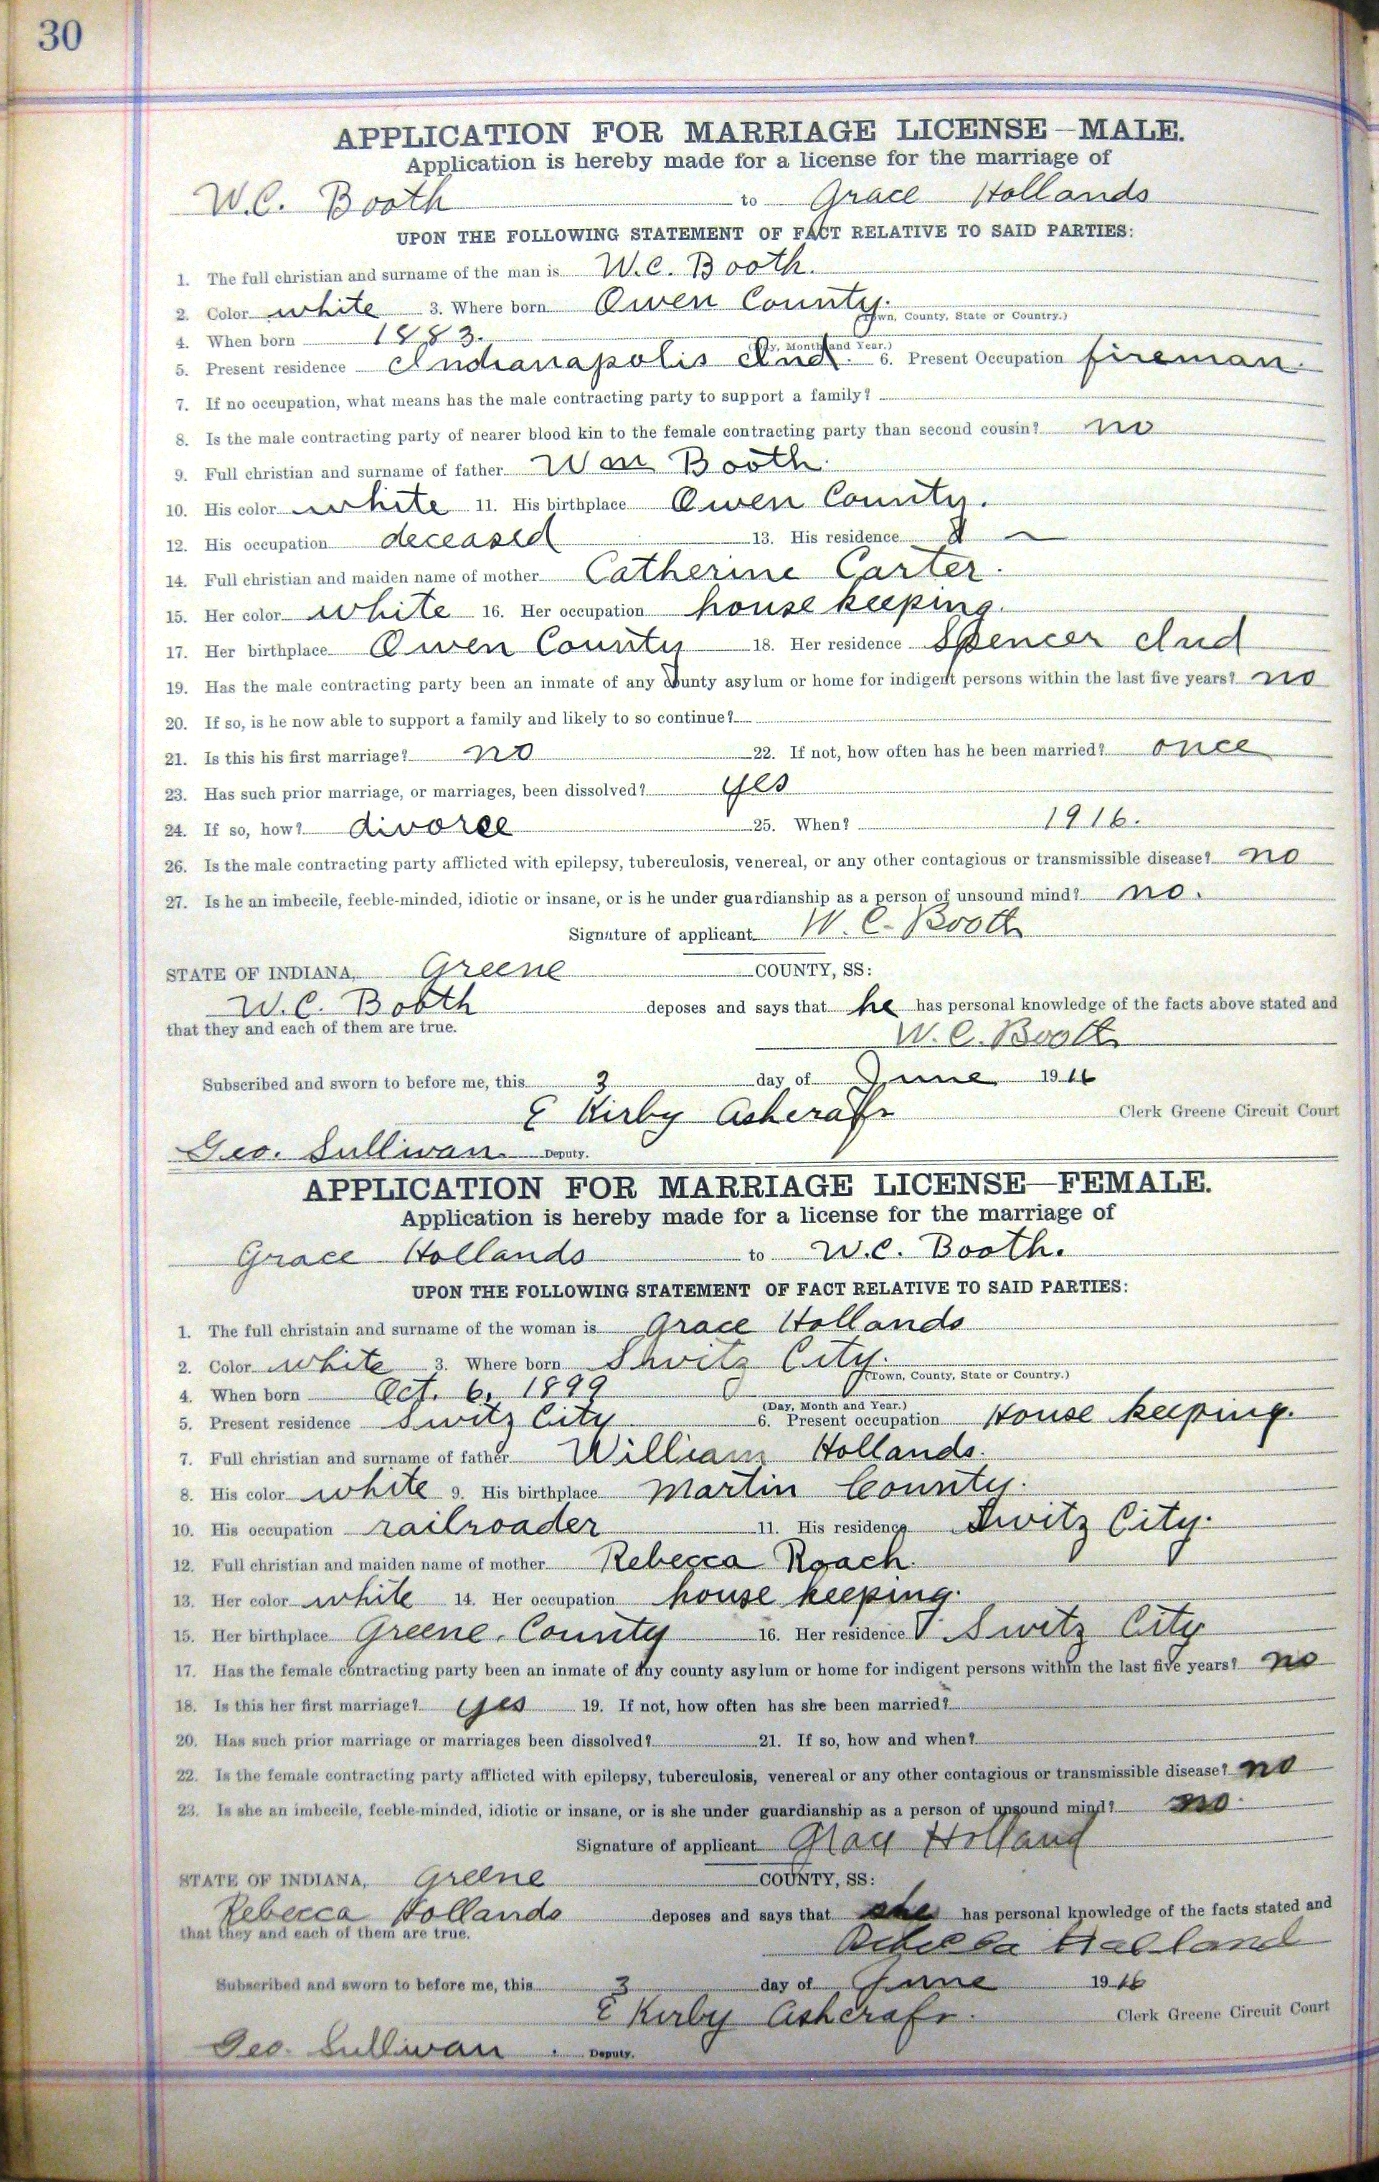 30
APPLICATION FOR MARRIAGE LICENSE—MALE.
Application is hereby made for a license for the marriage of
W.C. Booth to Grace Hollands
UPON THE FOLLOWING STATEMENT OF FACT RELATIVE TO SAID PARTIES:
1. The full christian and surname of the man is W.C. Booth.
2. Color white 3. Where born Owen County.
(Town, County, State or Country.)
4. When born 1883.
(Day, Month and Year.)
5. Present residence Indianapolis Ind. 6. Present Occupation fireman.
7. If no occupation, what means has the male contracting party to support a family?
8. Is the male contracting party of nearer blood kin to the female contracting party than second cousin? no
9. Full christian and surname of father Wm Booth.
10. His color white 11. His birthplace Owen County.
12. His occupation deceased 13. His residence
14. Full christian and maiden name of mother Catherine Carter.
15. Her color white 16. Her occupation house keeping.
17. Her birthplace Owen County 18. Her residence Spencer Ind
19. Has the male contracting party been an inmate of any county asylum or home for indigent persons within the last five years? no
20. If so, is he now able to support a family and likely to so continue?
21. Is this his first marriage? no 22. If not, how often has he been married? once
23. Has such prior marriage, or marriages, been dissolved? yes
24. If so, how? divorce 25. When? 1916.
26. Is the male contracting party afflicted with epilepsy, tuberculosis, venereal, or any other contagious or transmissible disease? no
27. Is he an imbecile, feeble-minded, idiotic or insane, or is he under guardianship as a person of unsound mind? no.
Signature of applicant W. C. Booth
STATE OF INDIANA, Greene COUNTY, SS:
W.C. Booth deposes and says that he has personal knowledge of the facts above stated and
that they and each of them are true.
W. C. Booth
Subscribed and sworn to before me, this 3 day of June 1916
E Kirby Ashcraft Clerk Greene Circuit Court
Geo. Sullivan. Deputy.
APPLICATION FOR MARRIAGE LICENSE—FEMALE.
Application is hereby made for a license for the marriage of
Grace Hollands to W.C. Booth.
UPON THE FOLLOWING STATEMENT OF FACT RELATIVE TO SAID PARTIES:
1. The full christain and surname of the woman is Grace Hollands
2. Color white 3. Where born Switz City.
(Town, County, State or Country.)
4. When born Oct. 6, 1899
(Day, Month and Year.)
5. Present residence Switz City 6. Present occupation House keeping.
7. Full christian and surname of father William Hollands.
8. His color white 9. His birthplace Martin County.
10. His occupation railroader 11. His residence Switz City.
12. Full christian and maiden name of mother Rebecca Roach.
13. Her color white 14. Her occupation house keeping.
15. Her birthplace Greene County 16. Her residence Switz City
17. Has the female contracting party been an inmate of any county asylum or home for indigent persons within the last five years? no
18. Is this her first marriage? yes 19. If not, how often has she been married?
20. Has such prior marriage or marriages been dissolved? 21. If so, how and when?
22. Is the female contracting party afflicted with epilepsy, tuberculosis, venereal or any other contagious or transmissible disease? no
23. Is she an imbecile, feeble-minded, idiotic or insane, or is she under guardianship as a person of unsound mind? no.
Signature of applicant Grace Holland
STATE OF INDIANA, Greene COUNTY, SS:
Rebecca Hollands deposes and says that she has personal knowledge of the facts stated and
that they and each of them are true.
Rebecca Holland
Subscribed and sworn to before me, this 3 day of June 1916
E Kirby Ashcraft. Clerk Greene Circuit Court
Geo. Sullivan. Deputy.